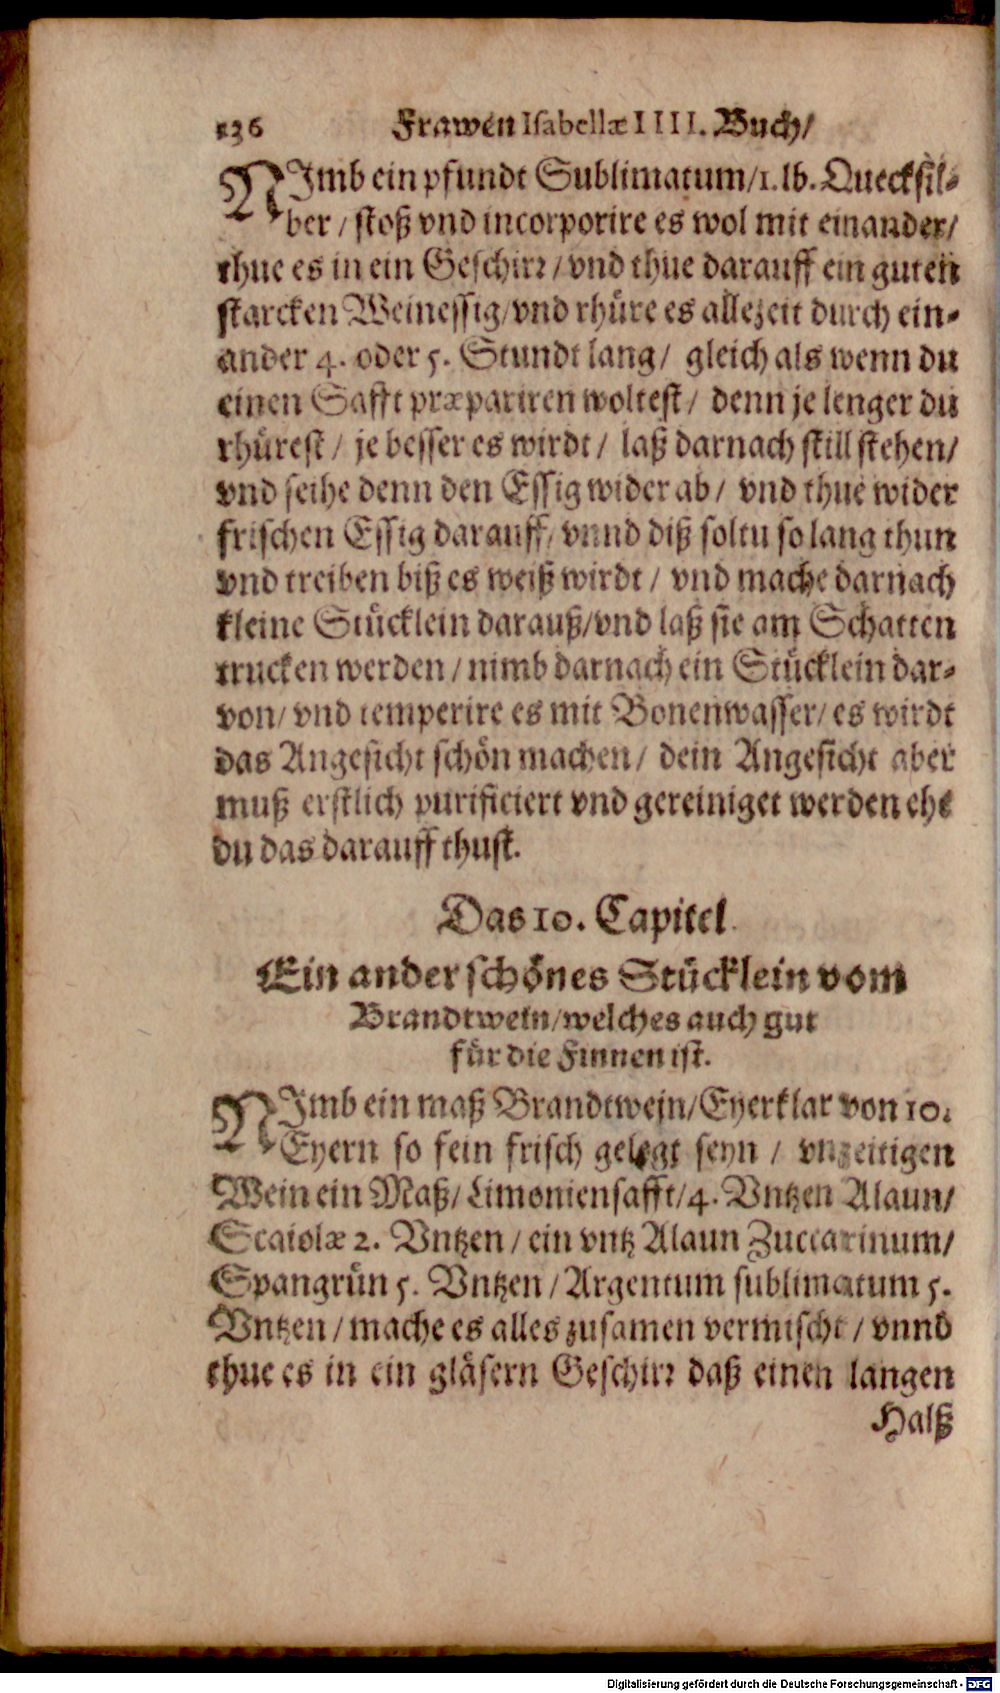 136 Frawen Isabellæ IIII. Buch/
NImb ein pfundt Sublimatum/1. lb. Quecksil-
ber / stoß vnd incorporire es wol mit einander/
thue es in ein Geschirr / vnd thue darauff ein guten
starcken Weinessig/vnd rhüre es allezeit durch ein-
ander 4. oder 5. Stundt lang/ gleich als wenn du
einen Safft præpariren woltest/ denn je lenger du
rhürest / je besser es wirdt / laß darnach still stehen/
vnd seihe denn den Essig wider ab / vnd thue wider
frischen Essig darauff/ vnnd diß soltu so lang thun
vnd treiben biß es weiß wirdt / vnd mache darnach
kleine Stücklein darauß/vnd laß sie am Schatten
trucken werden / nimb darnach ein Stücklein dar-
von/ vnd temperire es mit Bonenwasser/ es wirdt
das Angesicht schön machen/ dein Angesicht aber
muß erstlich purificiert vnd gereiniget werden ehe
du das darauff thust.
Das 10. Capitel.
Ein ander schönes Stücklein vom
Brandtwein/welches auch gut
für die Finnen ist.
NImb ein maß Brandtwejn/Eyerklar von 10.
Eyern so fein frisch gelegt seyn / vnzeitigen
Wein ein Maß/ Limoniensafft/4. Vntzen Alaun/
Scaiolæ 2. Vntzen / ein vntz Alaun Zuccarinum/
Spangrün 5. Vntzen / Argentum sublimatum 5.
Vntzen / mache es alles zusamen vermischt / vnnd
thue es in ein gläsern Geschirr daß einen langen
Halß
Digitalisierung gefördert durch die Deutsche Forschungsgemeinschaft - DFG